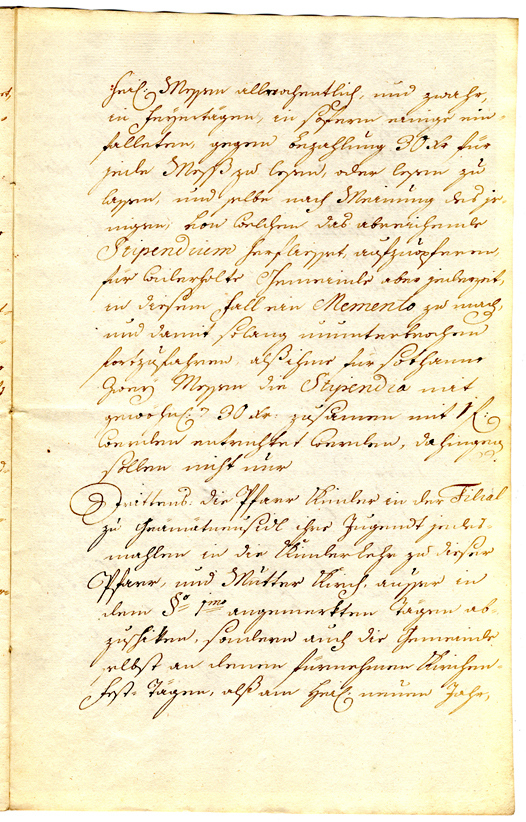 heil: Messen allwochentlich, und zwahr,
in Feyertägen, in sofern einige ein-
falleten, gegen bezahlung 30 xr für
jede Mess zu lesen, oder lesen zu
lassen, und selbe nach Meinung des je-
nigen, von welchen das abreichende
Stipendium herfliesset, aufzuopferen,
für widerholte Gemeinde aber jederzeit,
in diesem fall ein Memento zu mach,
und damit solang ununterbrochen
fortzufahren, alß ihme für sothanne
Zwey Messen die Stipendia mit
gewohnl: 30 xr: zusamen mit 1 f:
werden entrichtet werden, dahingegen
sollen nicht nur
Drittens: die Pfarr Kinder in der Filial
zu ihre Jugendt jedes-
mahlen in die Kinderlehr zu dieser
Pfarr, und Mutter Kirch, ausser in
dem §o 1mo angemerkten Tägen ab-
zushiken, sondern auch die Gemeinde
selbst an denen fürnehmen Kirchen-
Fest-Tägen, alß am Heil: neuen Jahr,